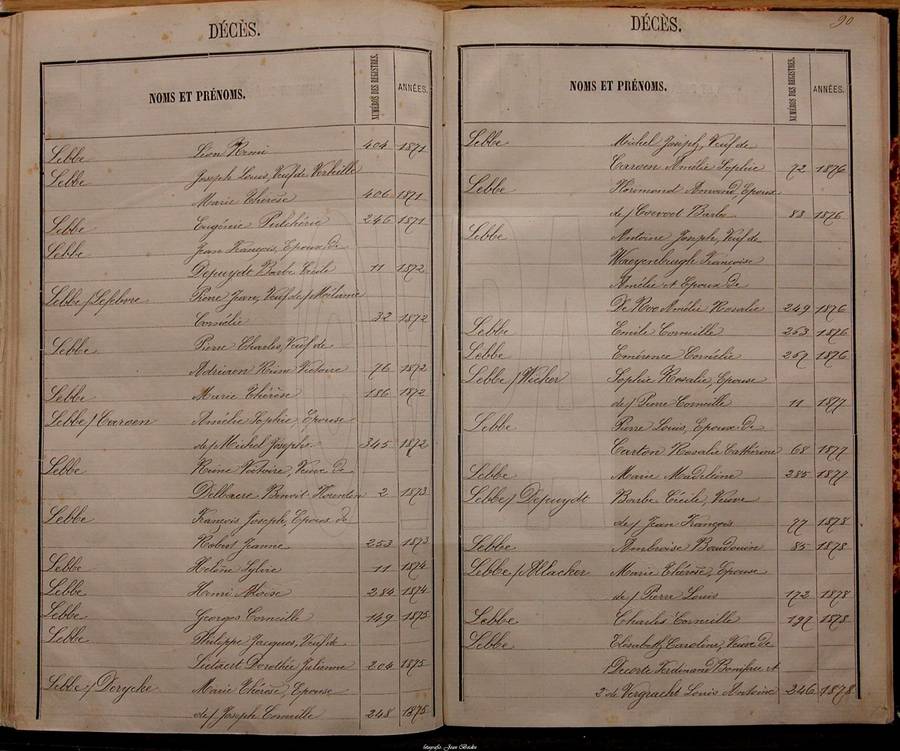 DÉCÈS.
NOMS ET PRÉNOMS. NUMÉROS DES REGISTRES. ANNÉES.
Lebbe Léon Remi 404 1871
Lebbe Joseph Louis, Veuf de Verhille
Marie Thérèse 406 1871
Lebbe Eugénie Pulchérie 246 1871
Lebbe Jean François, Epoux de
Depuydt Barbe Cécile 11 1872
Lebbe / Lefebvre Pierre Jean, Veuf de / Mélanie
Cornélie 32 1872
Lebbe Pierre Charles, Veuf de
Adriaen Reine Victoire 76 1872
Lebbe Marie Thérèse 186 1872
Lebbe / Caroen Amélie Sophie, Epouse
de / Michel Joseph 345 1872
Lebbe Reine Victoire, Veuve de
Delbaere Benoit 2 1873
Lebbe François Joseph, Epoux de
Robert Jeanne 253 1873
Lebbe Helène Sylvie 11 1874
Lebbe Henri Aloïse 284 1874
Lebbe Georges Corneille 149 1875
Lebbe Philippe Jacques, Veuf de
Lietaert Dorothée Julienne 204 1875
Lebbe / Derycke Marie Thérèse, Epouse
de / Joseph Corneille 248 1875
DÉCÈS. 90
NOMS ET PRÉNOMS. NUMÉROS DES REGISTRES. ANNÉES.
Lebbe Michel Joseph, Veuf de
Caroen Amélie Sophie 72 1876
Lebbe Amand, Epoux
de / Barbe 83 1876
Lebbe Antoine Joseph, Veuf de
Waeyenburgh Françoise
Amélie et Epoux de
De Roo Amélie Rosalie 249 1876
Lebbe Emile Corneille 253 1876
Lebbe Emérence Cornélie 257 1876
Lebbe / Wicker Sophie Rosalie, Epouse
de / Pierre Corneille 11 1877
Lebbe Pierre Louis, Epoux de
Carton Rosalie Cathérine 68 1877
Lebbe Marie Madeleine 285 1877
Lebbe / Depuydt Barbe Cécile, Veuve
de / Jean François 77 1878
Lebbe Ambroise Baudouin 85 1878
Lebbe / Marie Thérèse, Epouse
de / Pierre Louis 172 1878
Lebbe Charles Corneille 197 1878
Lebbe Elisabeth Caroline, Veuve de
Decorte Ferdinand Boniface et
2 de Vergracht Louis Antoine 246 1878
fotografie Jean Baelde